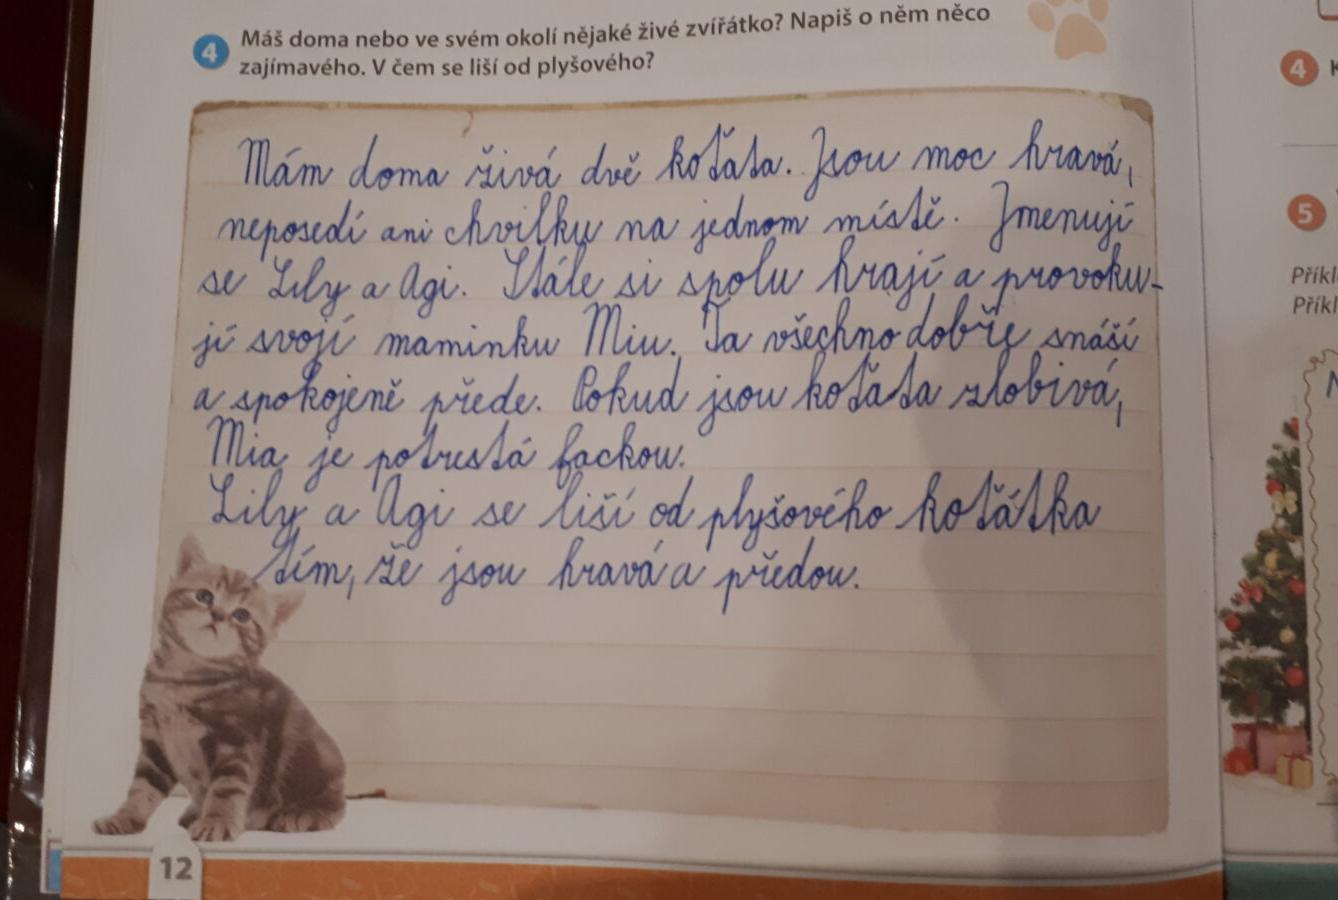 4 Máš doma nebo ve svém okolí nějaké živé zvířátko? Napiš o něm něco
zajímavého. V čem se liší od plyšového?
Mám doma živá dvě koťata. Jsou moc hravá,
neposedí ani chvilku na jednom místě. Jmenují
se Lily a Agi. Stále si spolu hrají a provoku-
jí svojí maminku Miu. Ta všechno dobře snáší
a spokojeně přede. Pokud jsou koťata zlobivá,
Mia je potrestá fackou.
Lily a Agi se liší od plyšového koťátka
tím, že jsou hravá a předou.
12
4 K
5
Příkl
Příkl